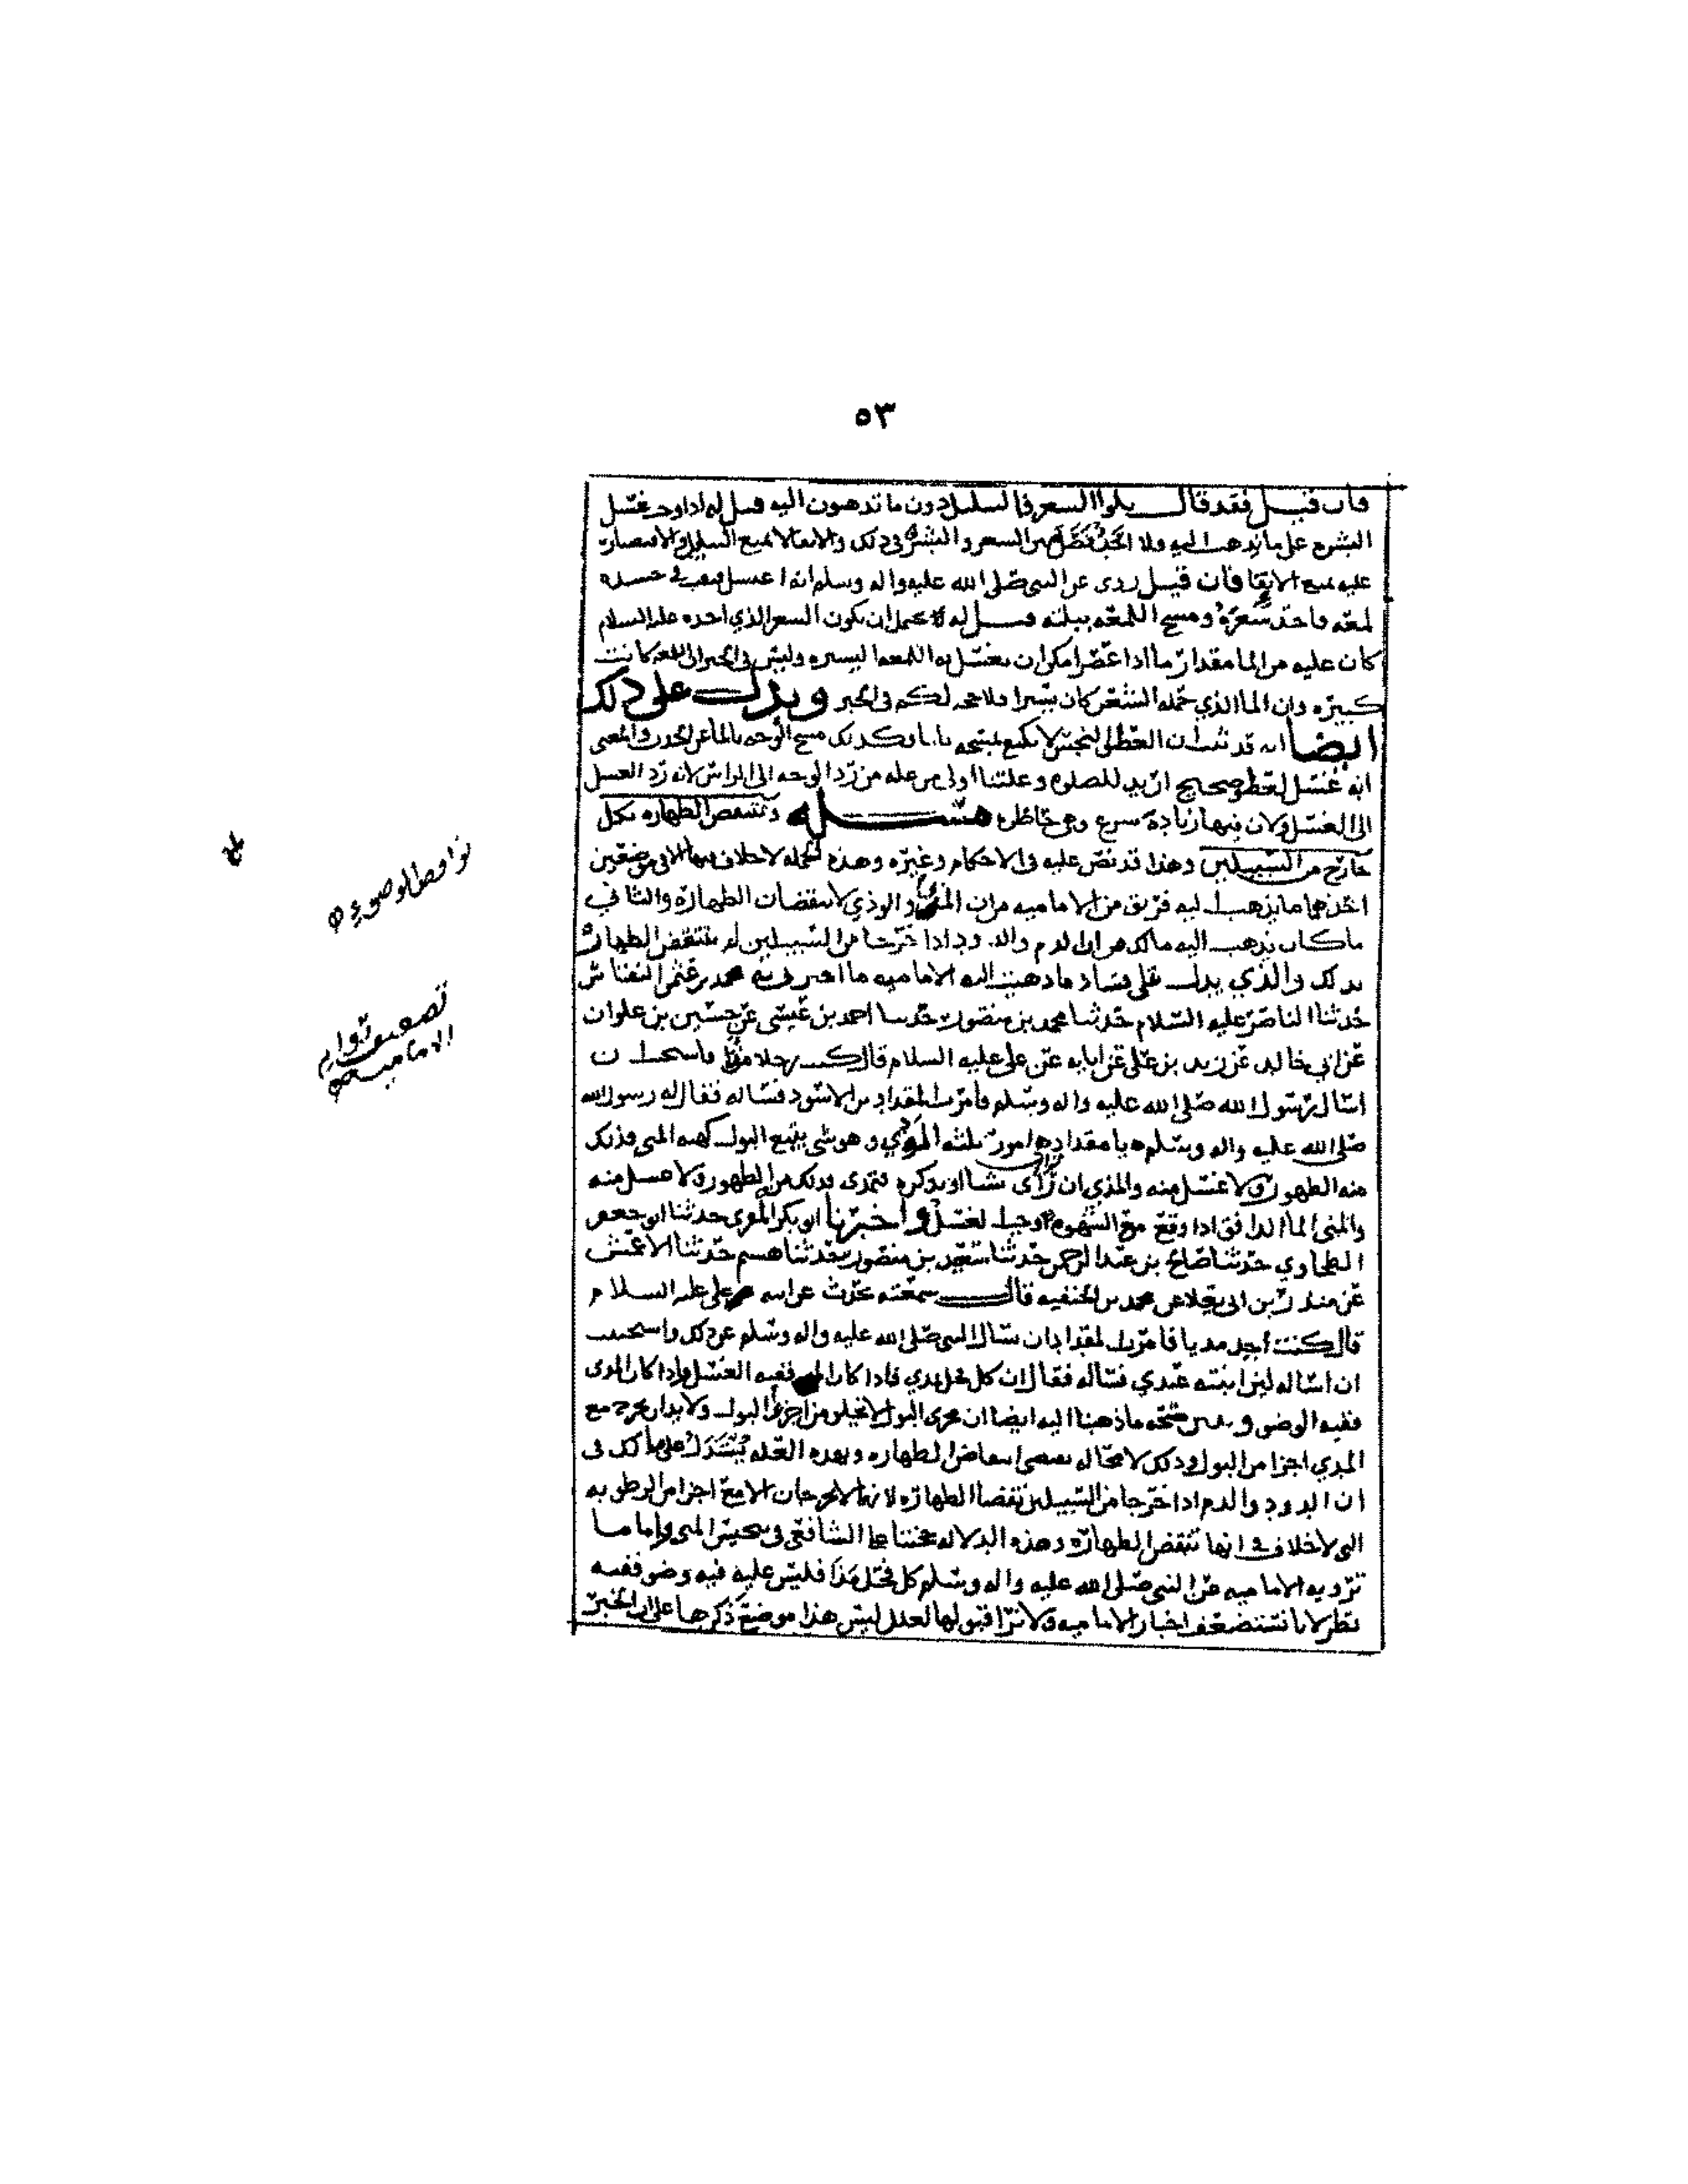 ٥٣
فان قيل فقد قال بلوا الشعر فالبلل دون ما تذهبون اليه قيل له اذا وجد غسل
البشرة على ما نذهب اليه ولا
عليه يمنع الانقا فان قيل روى عن النبي صلى الله عليه واله وسلم انه اغتسل فبقي في جسده
لمعه فاخذ شعره ومسح اللمعه ببلته قيل له يحتمل ان يكون الشعر الذي اخذه عليه السلام
كان عليه من الما مقدار ما اذا عصر امكن ان يغسل به اللمعه اليسيره وليس في الخبر ان اللمعه كانت
كبيره وان الما الذي حمله الشعر كان يسيرا فلا حجه لكم في الخبر ويدل على ذلك
ايضا انه قد ثبت ان العضو النجس لا يكفي مسحه بالما وكذلك مسح الوجه بالما عن الحدث والمعنى
انه غسل لعضو صحيح اريد للصلوه وعلتنا اولى من علة من رد الوجه الى الراس لانه رد الغسل
الى الغسل ولان فيها زيادة شرع وهي حاظره مسئله وتنتقض الطهاره بكل
خارج من السبيلين وهذا قد نص عليه في الاحكام وغيره وهذه الجمله لا خلاف فيها الا في موضعين
احدهما ما يذهب اليه فريق من الاماميه من ان المذي والوذي لا ينقضان الطهارة والثاني
ما كان يذهب اليه مالك من ان الدم والدود اذا خرجا من السبيلين لم تنتقض الطهارة
بذلك والذي يدل على فساد ما ذهبت اليه الاماميه ما اخبرني به محمد بن عثمن النقاش
حدثنا الناصر عليه السلام حدثنا محمد بن منصور حدثنا احمد بن عيسى عن حسين بن علوان
عن ابي خالد عن زيد بن علي عن ابايه عن علي عليه السلام قال كنت رجلا مذاء فاستحييت ان
اسال رسول الله صلى الله عليه واله وسلم فامرت المقداد بن الاسود فساله فقال له رسول الله
صلى الله عليه واله وسلم يا مقداد هي امور ثلثه الودي وهو شي يتبع البول كهيئة المني فذلك
منه الطهور ولا غسل منه والمذي ان يرى شيا او يذكره فتمذى فذلك من الطهور ولا غسل منه
والمني الما الدافق اذا وقع مع الشهوه اوجب الغسل واخبرنا ابو بكر المقري حدثنا ابو جعفر
الطحاوي حدثنا صالح بن عبد الرحمن حدثنا سعيد بن منصور حدثنا هشيم حدثنا الاعمش
عن منذر بن ابي يعلا عن محمد بن الحنفيه قال سمعته يحدث عن ابيه علي عليه السلام
قال كنت اجد مذيا فامرت المقداد ان يسال النبي صلى الله عليه واله وسلم عن ذلك واستحييت
ان اساله لان ابنته عندي فساله فقال ان كل فحل يمذي فاذا كان المني ففيه الغسل واذا كان المذي
ففيه الوضو و صحه ما ذهبنا اليه ايضا ان مجرى البول لا يخلو من اجزاء البول ولا بد ان يخرج مع
المذي اجزا من البول وذلك لا محاله يقتضي انتقاض الطهاره وبهذه العله يستدل على مالك في
ان الدود والدم اذا خرجا من السبيلين نقضا الطهاره لانهما لا يخرجان الا مع اجزا من الرطوبه
التي لا خلاف في انها تنقض الطهارة وهذه الدلاله تحجنا على الشافعي في تنجيس المني واما ما
ترويه الاماميه عن النبي صلى الله عليه واله وسلم كل فحل مذا فليس عليه فيه وضو ففيه
نظر لانا نستضعف اخبار الاماميه ولا نرا قبولها لعلل ليس هذا موضع ذكرها على ان الخبر
نواقض الوضوء
تضعيف رواية
الاماميه